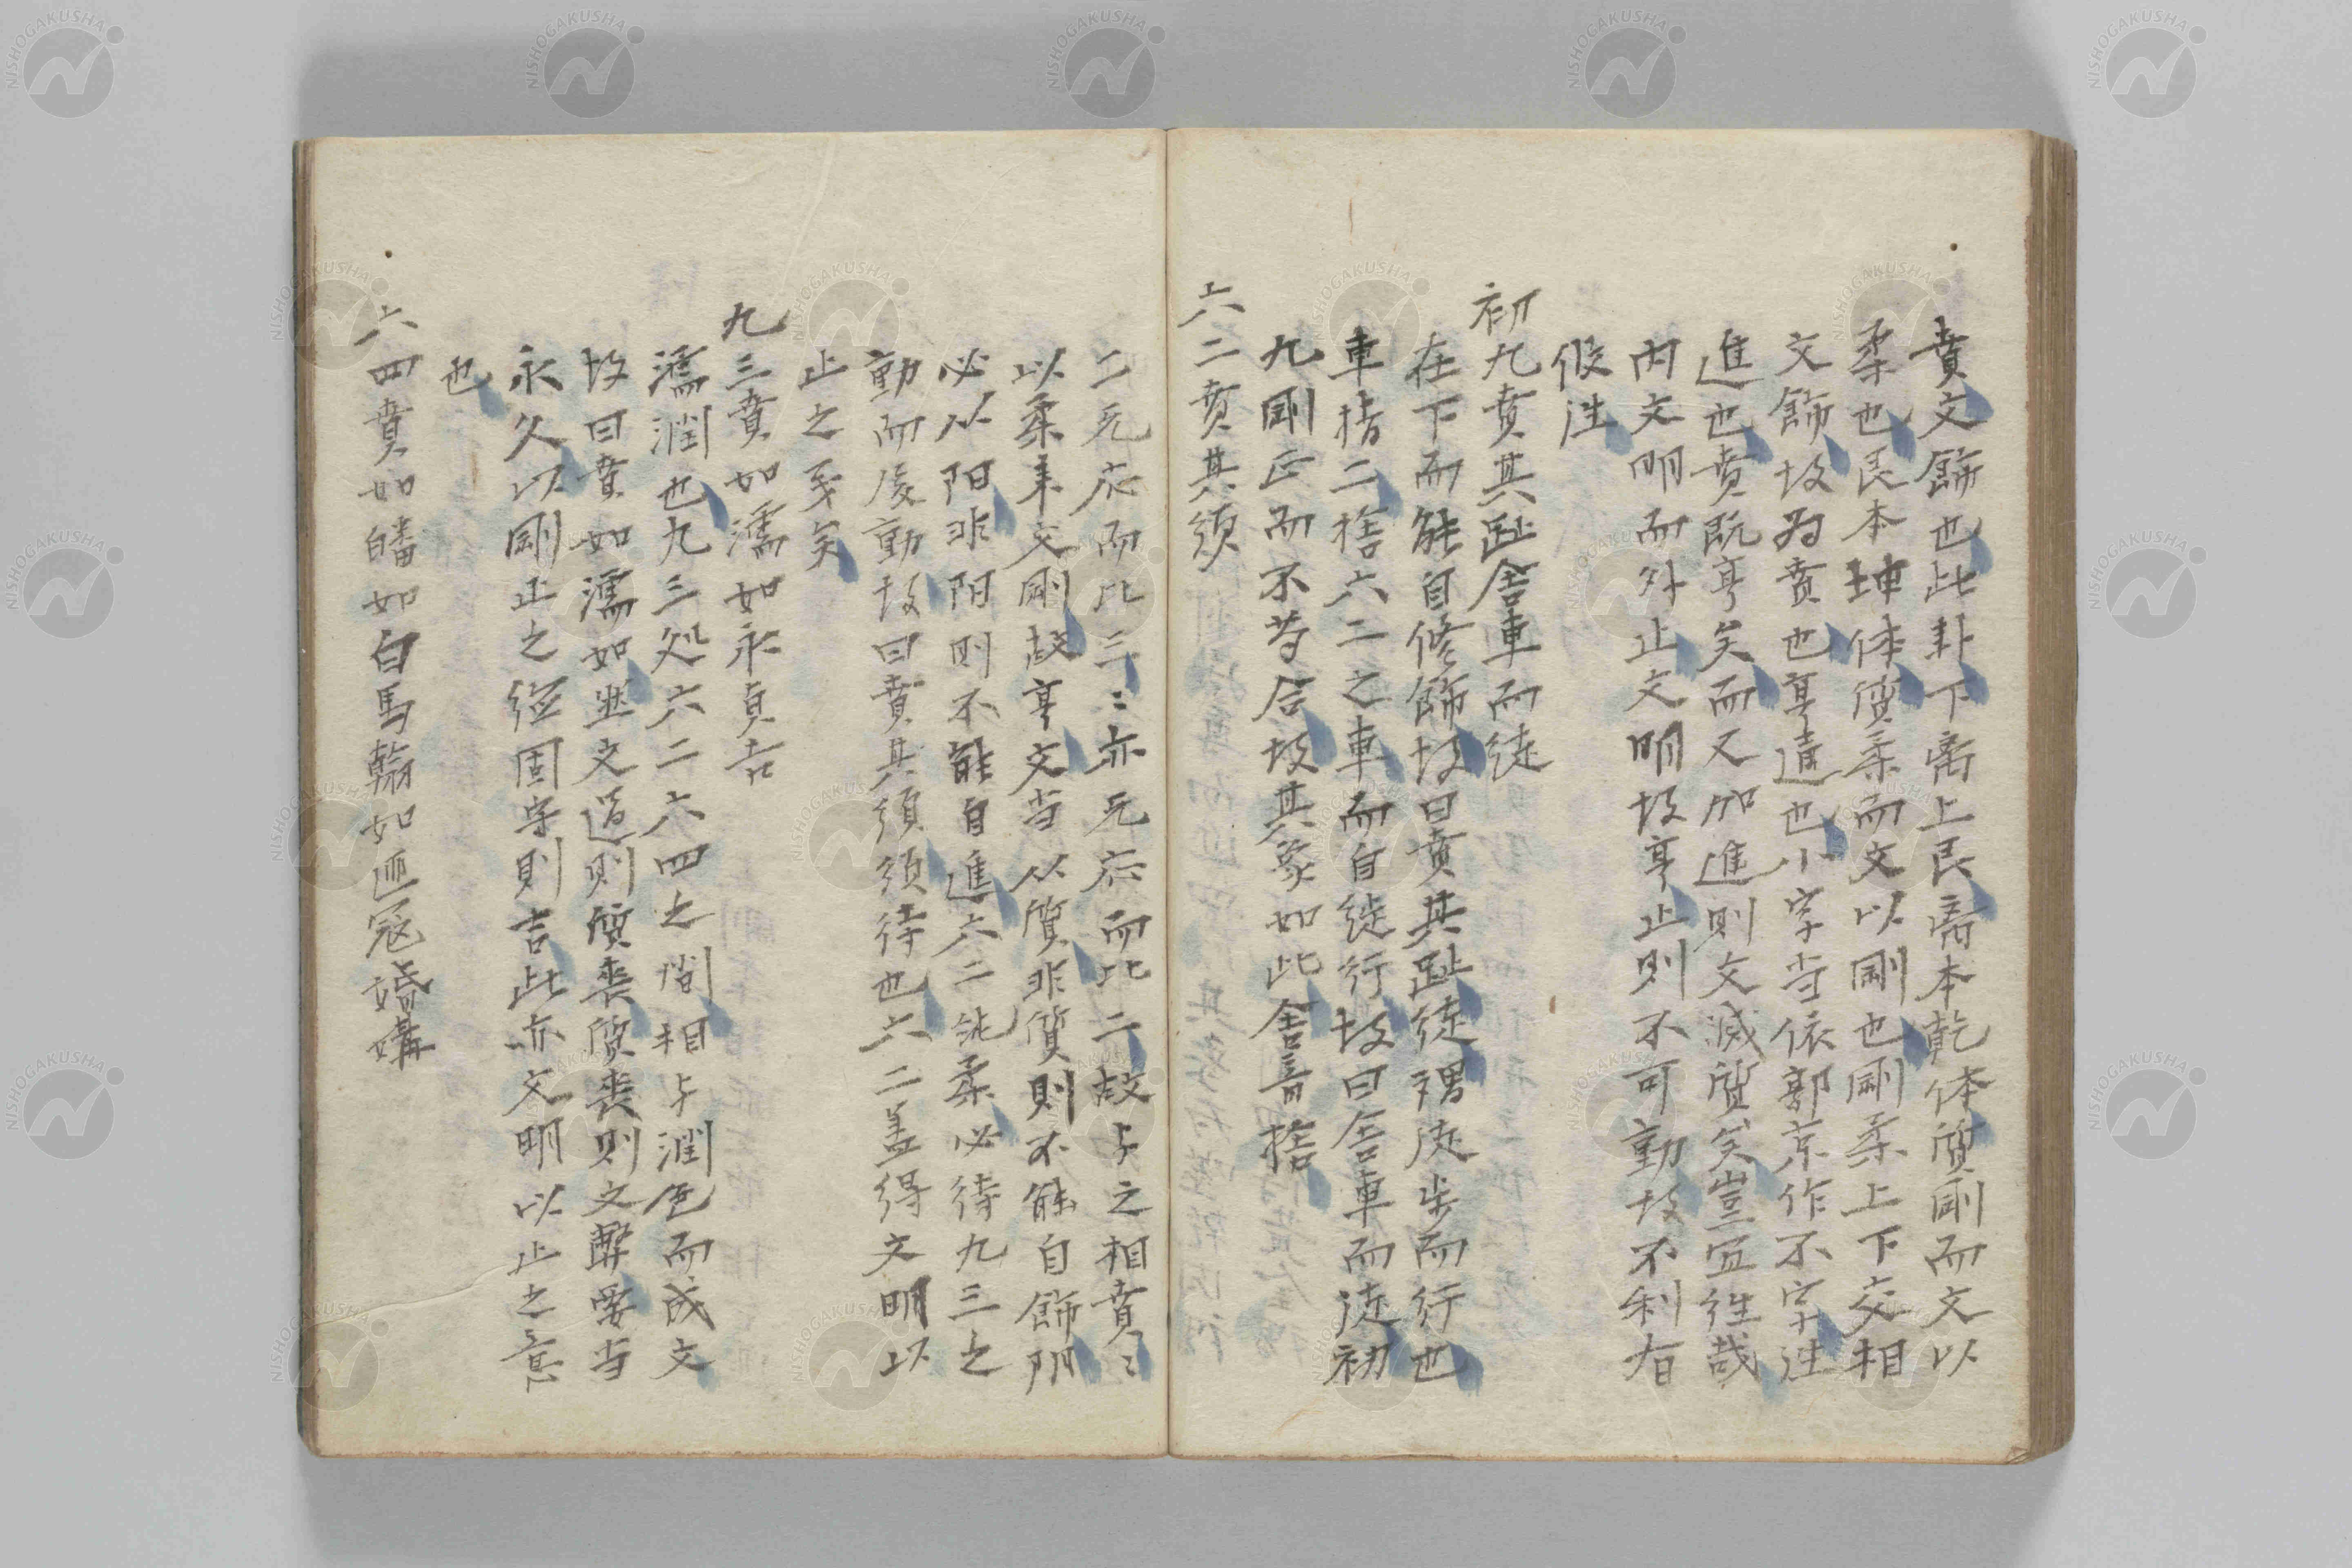 賁文飾也此卦下离上艮离本乾体質剛而文以
柔也艮本坤体質柔而文以剛也剛柔上下交相
文飾故為賁也亨通也小字当依郭京作不字往
進也賁既亨矣而又加進則文滅質矣豈宜往哉
内文明而外止文明故亨止則不可動故不利有
攸往
初九賁其趾舎車而徒
在下而能自修飾故曰賁其趾徒謂徒歩而行也
車指二捨六二之車而自徒行故曰舎車而徒初
九剛正而不苟合故其象如此舎音捨
六二賁其須
二无応而比三〻亦无応而比二故与之相賁〻
以柔来文剛故亨文当从質非質則不能自飾阴
必从阳非阳則不能自進六二純柔必待九三之
動而後動故曰賁其須須待也六二盖得文明以
止之義矣
九三賁如濡如永貞吉
濡潤也九三処六二六四之間相与潤色而成文
故曰賁如濡如然文過則質喪質喪則文弊要当
永久以剛正之徳固守則吉此亦文明以止之意
也
六四賁如皤如白馬翰如匪寇婚媾
NISHOGAKUSHA